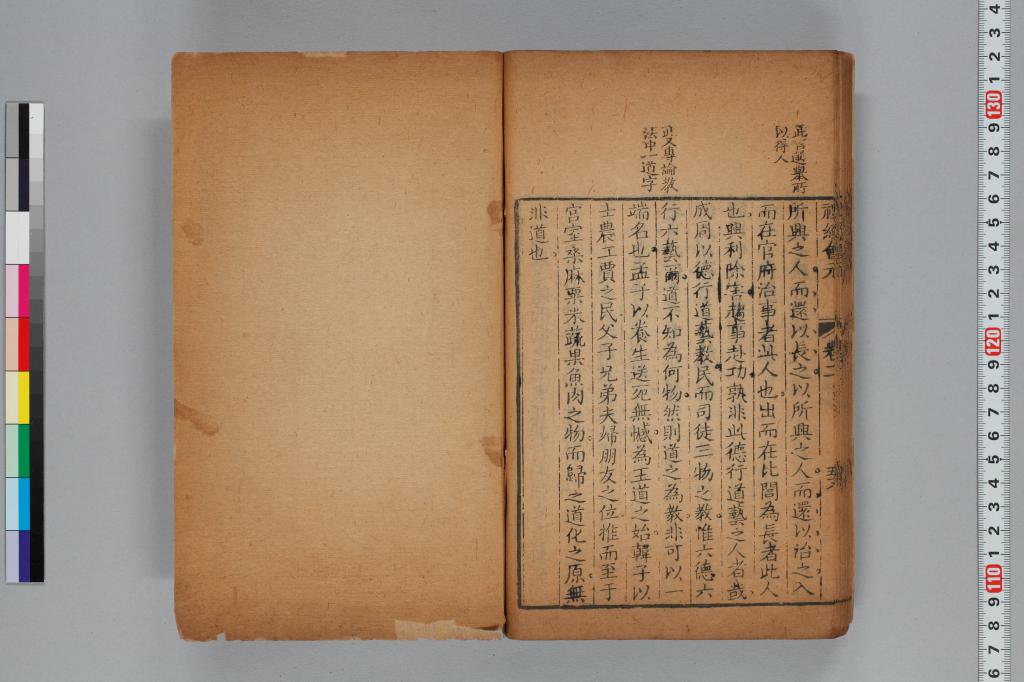 此言選舉所
以得人
此又專論教
法中一道字
禮經會元
卷二
所興之人而還以長之以所興之人而還以治之入
而在官府治事者此人也出而在比閭為長者此人
也興利除害趨事赴功孰非此德行道藝之人者哉
成周以德行道藝教民而司徒三物之教惟六德六
行六藝爾道不知為何物然則道之為教非可以一
端名也孟子以養生送死無憾為王道之始韓子以
士農工賈之民父子兄弟夫婦朋友之位推而至于
宮室桑麻粟米蔬果魚肉之物而歸之道化之原無
非道也